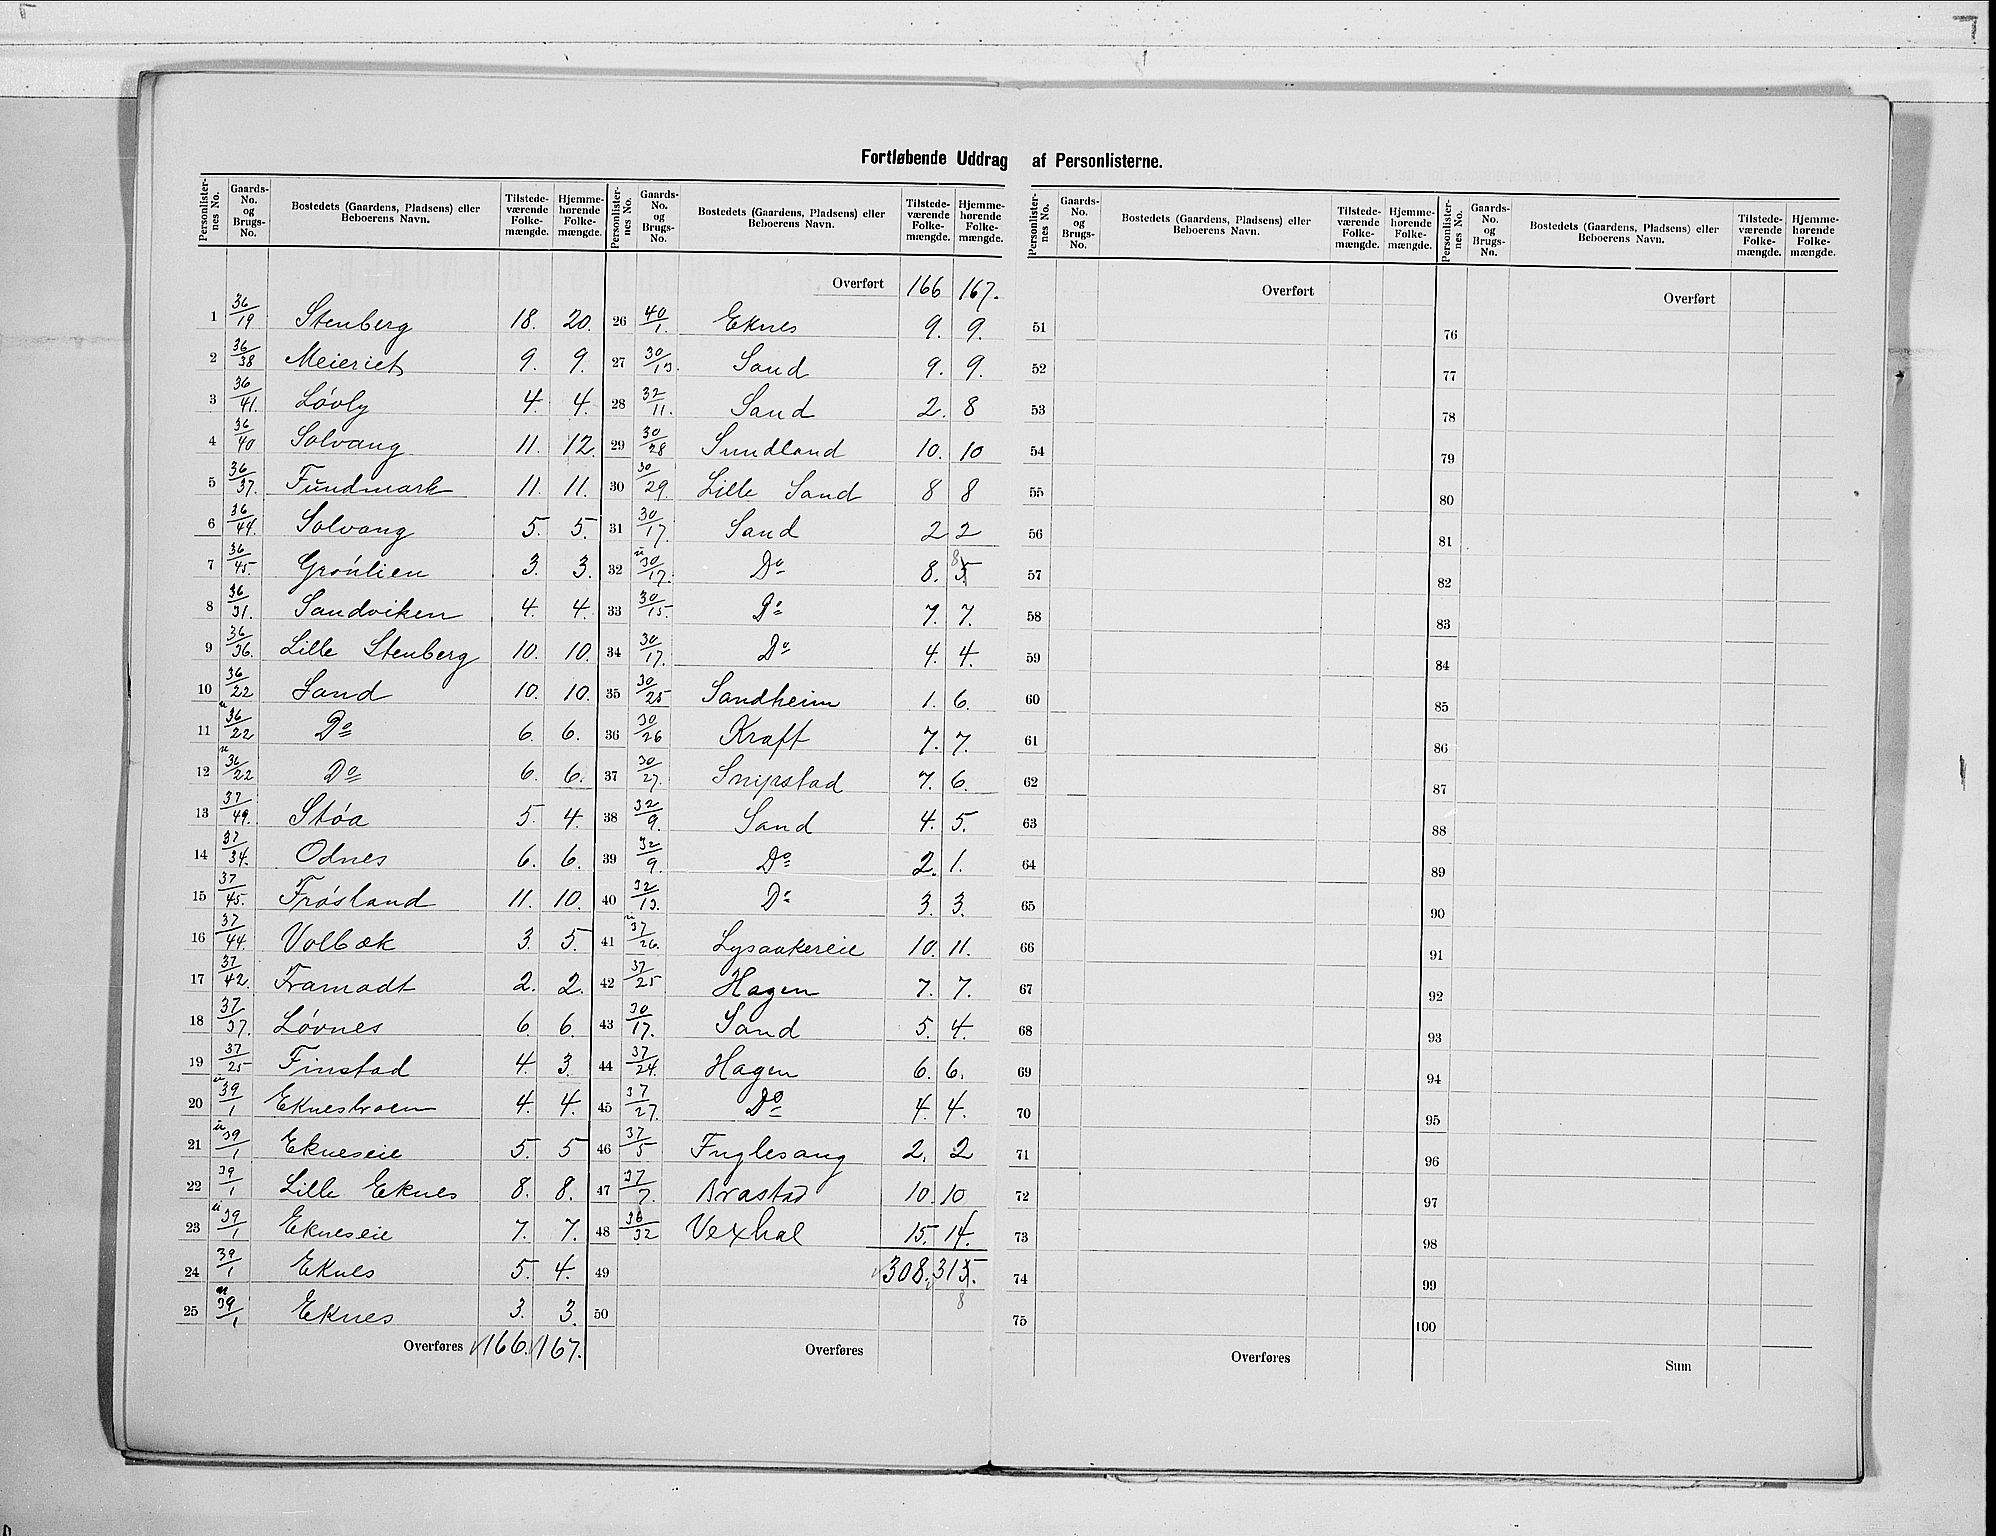 Fortløbende Uddrag af Personlisterne.
Personlisternes No. | Gaards-No. og Brugs-No. | Bostedets (Gaardens, Pladsens) eller Beboerens Navn. | Tilstedeværende Folkemængde. | Hjemmehørende Folkemængde.
1 36/19 Stenberg 18. 20.
2 36/38 Meieriet 9. 9.
3 36/41. Løvly 4. 4.
4 36/40 Solvang 11. 12.
5 36/37. Fŭndmark 11. 11.
6 36/44. Solvang 5. 5.
7 36/45. Grønlien 3. 3.
8 36/31. Sandviken 4. 4.
9 36/36. Lille Stenberg 10. 10.
10 36/22 Sand 10. 10.
11 u 36/22 Do 6. 6.
12 u 36/22 Do 6. 6.
13 37/49. Støa 5. 4.
14 37/34. Odnes 6. 6.
15 37/45. Frøsland 11. 10.
16 37/44. Volbæk 3. 5.
17 37/42. Framadt 2. 2.
18 37/37. Løvnes 6. 6.
19 37/25 Finstad 4. 3.
20 u 39/1 Eknesbraen 4. 4.
21 u 39/1 Ekneseie 5. 5
22 39/1 Lille Eknes 8. 8.
23 u 39/1 Ekneseie 7. 7.
24 39/1 Eknes 5. 4.
25 39/1 Eknes 3. 3.
Overføres 166. 167.
Personlisternes No. | Gaards-No. og Brugs-No. | Bostedets (Gaardens, Pladsens) eller Beboerens Navn. | Tilstedeværende Folkemængde. | Hjemmehørende Folkemængde.
Overført 166 167.
26 40/1. Eknes 9. 9.
27 30/13. Sand 9. 9.
28 32/11. Sand 2. 8
29 30/28 Sundland 10. 10
30 30/29. Lille Sand 8 8
31 30/17. Sand 2 2
32 u 30/17. Do 8. 5 8
33 30/15. Do 7. 7.
34 30/17. Do 4. 4.
35 30/25 Sandheim 1. 6.
36 30/26 Kraft 7. 7.
37 30/27. Snipstad 7. 6.
38 32/9. Sand 4. 5.
39 32/9. Do 2. 1.
40 32/13. Do 3. 3.
41 u 37/26. Lysaakereie 10. 11.
42 37/25 Hagen 7. 7.
43 30/17. Sand 5. 4.
44 37/24. Hagen 6. 6.
45 37/27. Do 4. 4.
46 37/5 Fuglesang 2. 2
47 37/7. Brastad 10. 10
48 36/32 Vexhal 15. 14.
49 308. 315.
8
50
Overføres
Personlisternes No. | Gaards-No. og Brugs-No. | Bostedets (Gaardens, Pladsens) eller Beboerens Navn. | Tilstedeværende Folkemængde. | Hjemmehørende Folkemængde.
Overført
51
52
53
54
55
56
57
58
59
60
61
62
63
64
65
66
67
68
69
70
71
72
73
74
75
Overføres
Personlisternes No. | Gaards-No. og Brugs-No. | Bostedets (Gaardens, Pladsens) eller Beboerens Navn. | Tilstedeværende Folkemængde. | Hjemmehørende Folkemængde.
Overført
76
77
78
79
80
81
82
83
84
85
86
87
88
89
90
91
92
93
94
95
96
97
98
99
100
Sum